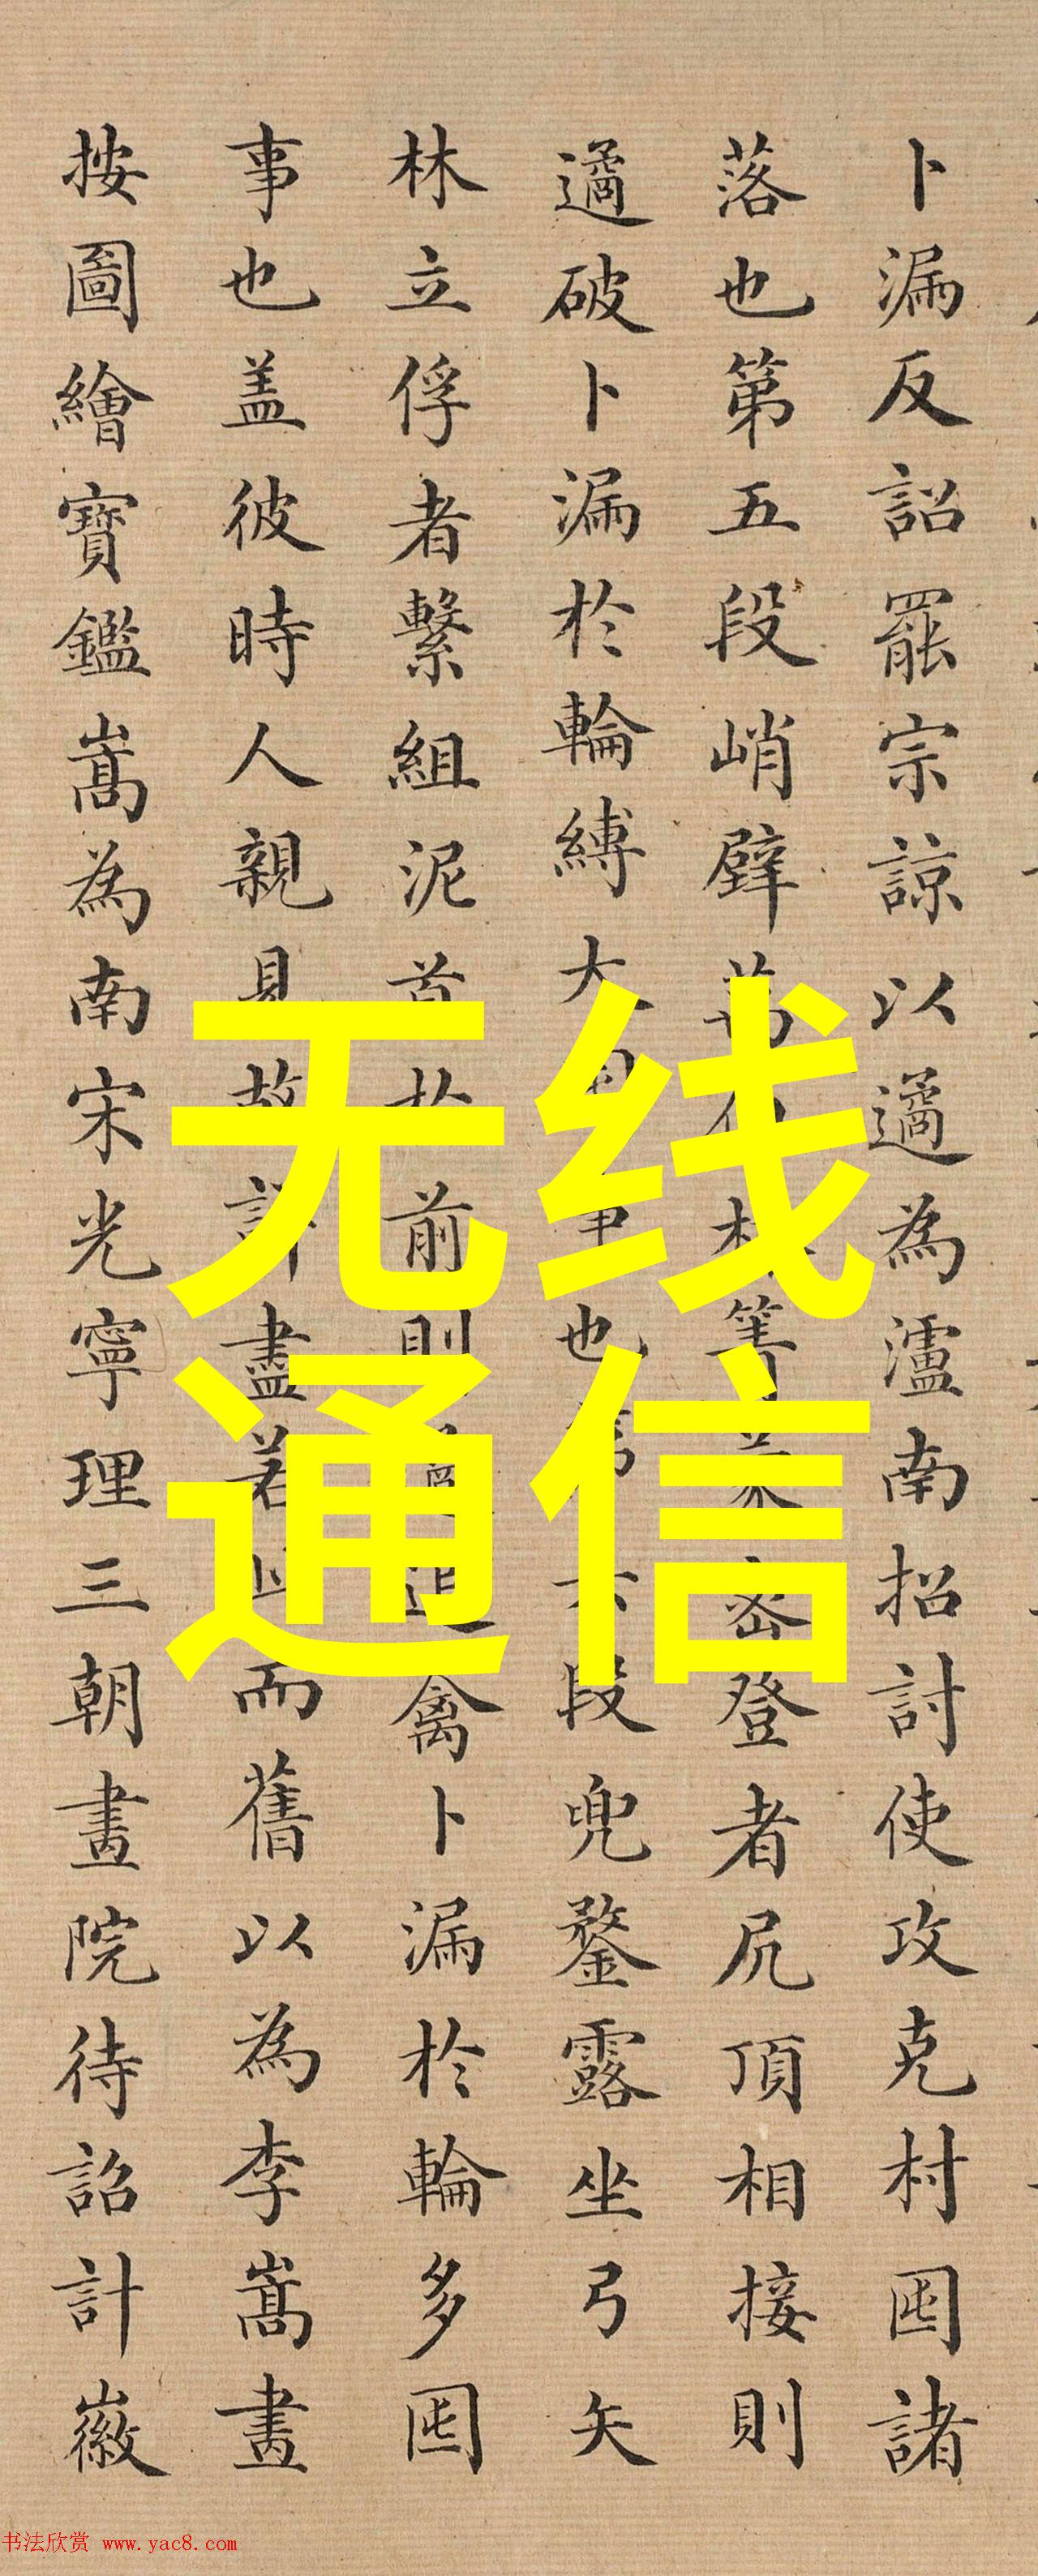 卜漏反詔罷宗諒以遹為瀘南招討使攻克村囤諸
落也第五段峭壁萬村箐密登者尻頂相接則
遹破卜漏於輪縛大囤事也第六段兜鍪露坐弓矢
林立俘者繫組泥首於前則禽卜漏於輪多囤
事也盖彼時人親見故詳盡若此而舊以為李嵩畫
按圖繪寶鑑嵩為南宋光寧理三朝畫院待詔計徽
无线
通信
书法欣赏 www.yac8.com